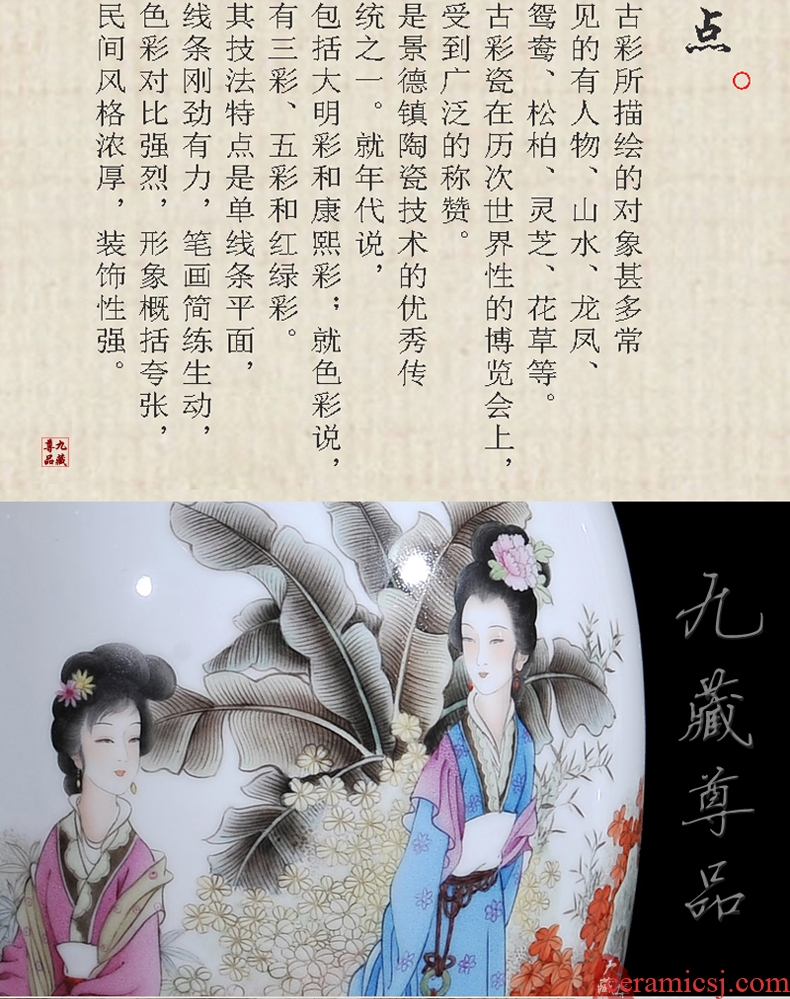 点
古彩所描绘的对象甚多常
见的有人物、山水、龙凤、
鸳鸯、松柏、灵芝、花草等。
古彩瓷在历次世界性的博览会上,
受到广泛的称赞。
是景德镇陶瓷技术的优秀传
统之一。就年代说,
包括大明彩和康熙彩；就色彩说,
有三彩、五彩和红绿彩。
其技法特点是单线条平面,
线条刚劲有力,笔画简练生动,
色彩对比强烈,形象概括夸张,
民间风格浓厚,装饰性强。
九藏
尊品
九藏尊品
eramicsj.com